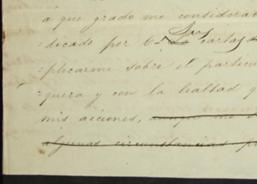 a que grado me considerar
dicado por Ud. las cartas
plicarme sobre el particu
quera y con la lealtad q
mis acciones,
algunas circunstancias p